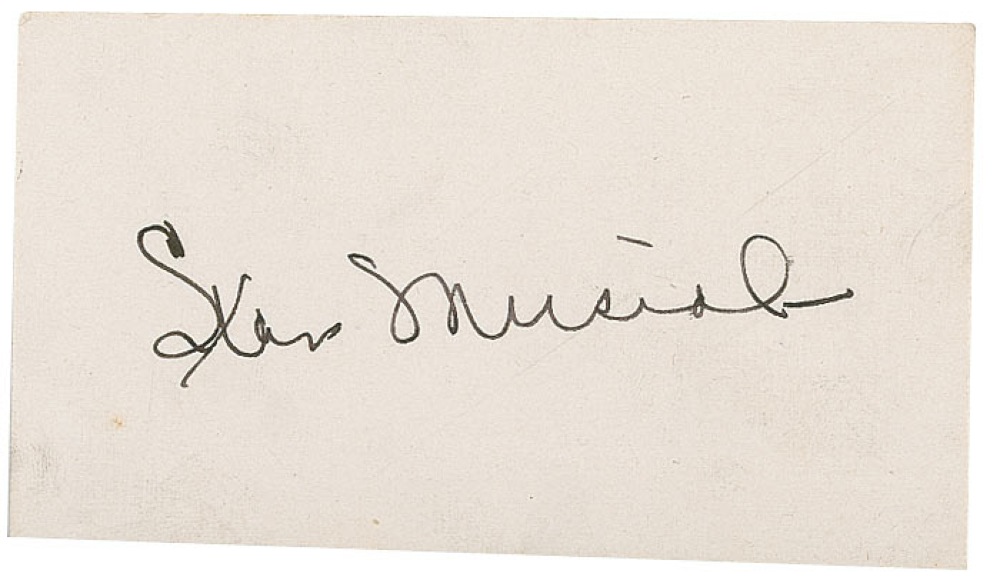 Stan Musial